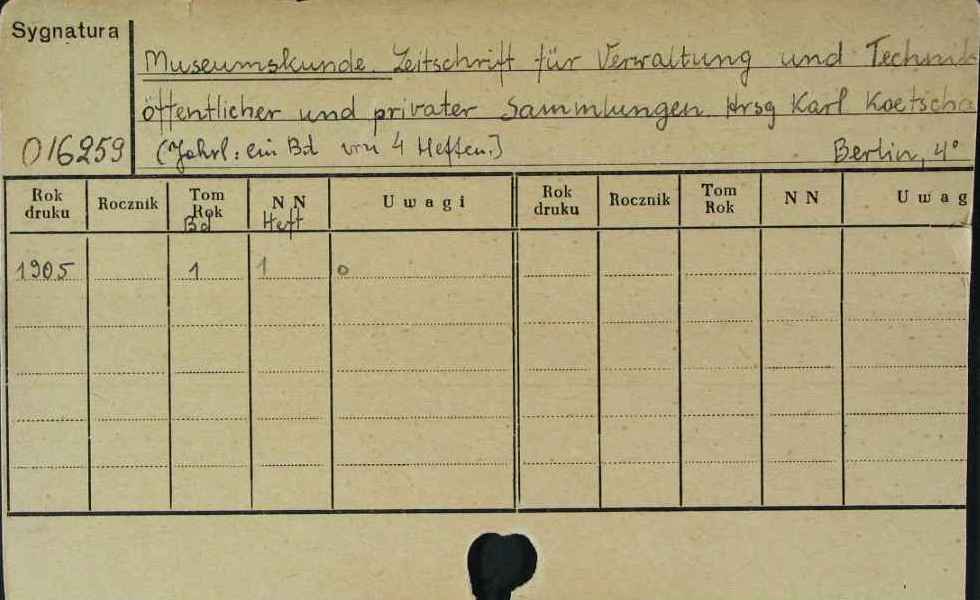 Sygnatura
Museumskunde. Zeitschrift für Verwaltung und Technik
öffentlicher und privater Sammlungen Hrsg Karl Koetscha
016259 (Jährl: ein Bd von 4 Heften.) Berlin, 4°
Rok druku Rocznik Tom Rok N N U w a g i Rok druku Rocznik Tom Rok N N U w a g
Bd Heft
1905 1 1 o